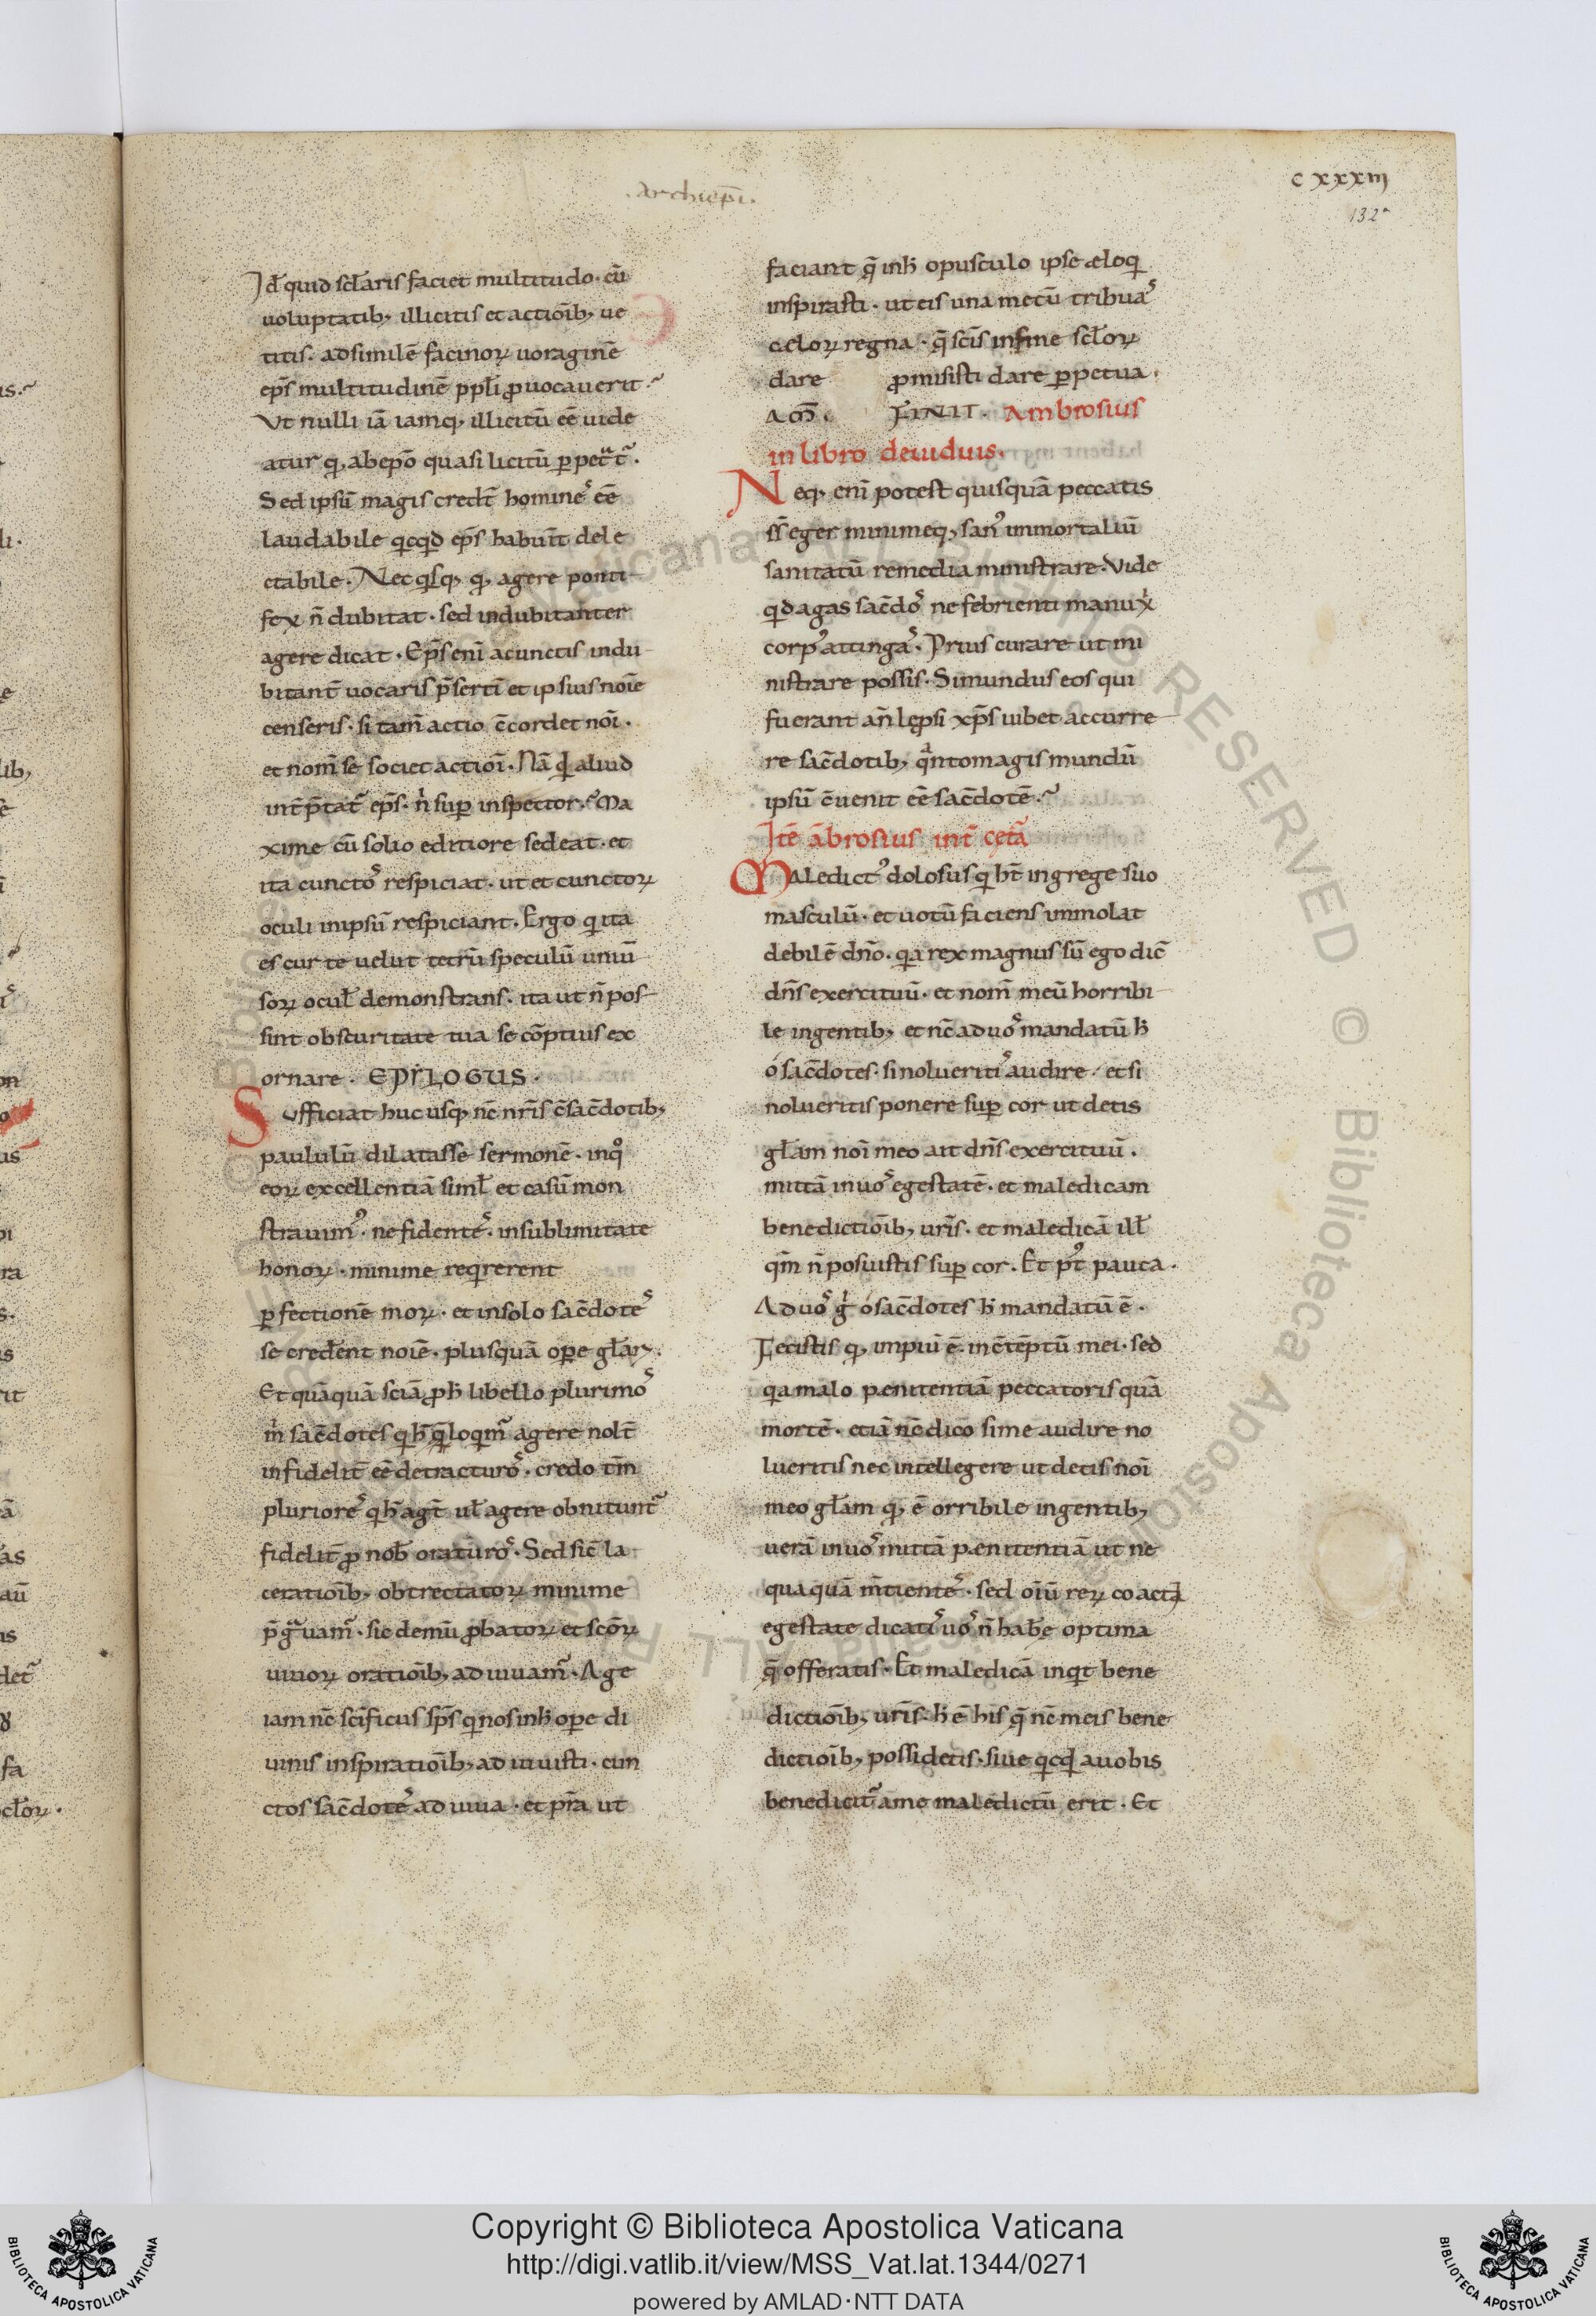 .Archiep̄i.
C XXXIII
132ᵃ
Id̄ quid scl̄aris faciet multitudo. cū
uoluptatib; illicitis et actiōib; ue
titis. ad similē facinoꝝ uoraginē
ep̄s multitudinē ppl̄i ꝓuocauerit.
Vt nulli iā iamq; illicitū eē uide
atur q; ab ep̄o quasi licitū ꝑpet̄t̄.
Sed ipsū magis credt̄ homines eē
laudabile qcqd ep̄s habuīt dele
ctabile. Nec qsq; q; agere ponti
fex n̄ dubitat. sed indubitanter
agere dicat. Ep̄s enī a cunctis indu
bitant̄ uocaris p̄sertī et ipsius noīe
censeris. si tam̄ actio c̄cordet noī.
et nom̄ se societ actioī. Nā qd aliud
int̄p̄tat̄ ep̄s. n̄ suꝑ inspector. Ma
xime cū solio editiore sedeat. et
ita cunctos respiciat. ut et cunctoꝝ
oculi in ipsū respiciant. Ergo q ita
es cur te uelut tetrū speculū uniū
soꝝ ocul̄ demonstrans. ita ut n̄ pos
sint obscuritate tua se cōptius ex
ornare. EPILOGUS.
Sufficiat huc usq; nc̄ nr̄is c̄sac̄dotib;
paululū dilatasse sermonē. inqo
eoꝝ excellentiā siml̄ et casū mon
strauim᾿. ne fidentes. in sublimitate
honoꝝ. minime reqrerent
ꝑfectionē moꝝ. et in solo sac̄dotes
se cred̄ent noīe. plusquā oꝑe gl̄aꝝ.
Et quāquā sciā ꝓ h̄ libello plurimos
m̄ sac̄dotes q h̄ q̄ loqm̄ agere nolt̄
infidelit̄ eē detracturos. credo tm̄
pluriores q h̄ agt̄ ul̄ agere obnitunt̄
fidelit̄ ꝓ nob̄ oraturos. Sed sic̄ la
ceratioīb; obtrectatoꝝ minime
p̄gͣuam̄. sic demū ꝓbatoꝝ et sc̄oꝝ
uiuoꝝ oratioīb; adiuuam̄. Age
iam nc̄ sc̄ificus sp̄s q nos in h̄ oꝑe di
uinis inspiratioīb; adiuuisti. cun
ctos sac̄dotes adiuua. et pr̄a ut
faciant q̄ in h̄ opusculo ipse æloq
inspirasti. ut eis una mecū tribuas
cæloꝝ regna. q̄ sc̄is in fine scl̄oꝝ
dare ꝓmisisti dare ꝑpetua.
AM̄. FINIT. Ambrosius
in libro de uiduis.
Neq; enī potest quisquā peccatis
ss̄ eger minimeq; san᾿ inmortaliū
sanitatū remedia ministrare. Vide
qd agas sac̄dos ne febrienti manu xp̄i
corp᾿ attingas. Prius curare ut mi
nistrare possis. Si mundus eos qui
fuerant an̄ lępsi xp̄s iubet accurre
re sac̄dotib; qͣnto magis mundū
ipsū c̄uenit eē sac̄dotē.
Itē ābrosius int̄ cęt̄a
Maledict᾿ dolosus q h̄t in grege suo
masculū. et uotū faciens immolat
debilē dn̄o. qa rex magnus sū ego dic̄
dn̄s exercituū. et nom̄ meū horribi
le in gentib; et nc̄ ad uos mandatū h̄
ó sac̄dotes. si nolueritis audire. et si
nolueritis ponere suꝑ cor ut detis
gl̄am noī meo ait dn̄s exercituū.
mittā in uos egestatē. et maledicam
benedictioīb; ur̄is. et maledicā ill̄
qm̄ n̄ posuistis suꝑ cor. Et p᾿t pauca.
Ad uos g̊ ó sac̄dotes h̄ mandatū ē.
Fecistis q; impiū ē. in c̄tēptū mei. sed
qa malo penitentiā peccatoris quā
mortē. etiā nc̄ dico si me audire no
lueritis nec intellegere ut detis noī
meo gl̄am q; ē orribile in gentib;
uerā in uos mittā penitentiā ut ne
quaquā m̄tientes. sed oīū reꝝ coacta
egestate dicatis uos n̄ hab̄e optima
q̄ offeratis. Et maledicā inqt bene
dictioīb; ur̄is. h̄ ē his q̄ nc̄ meis bene
dictioīb; possidetis. siue qcqd a uobis
benedicit̄ a me maledictū erit. Et
Copyright © Biblioteca Apostolica Vaticana
http://digi.vatlib.it/view/MSS_Vat.lat.1344/0271
powered by AMLAD·NTT DATA